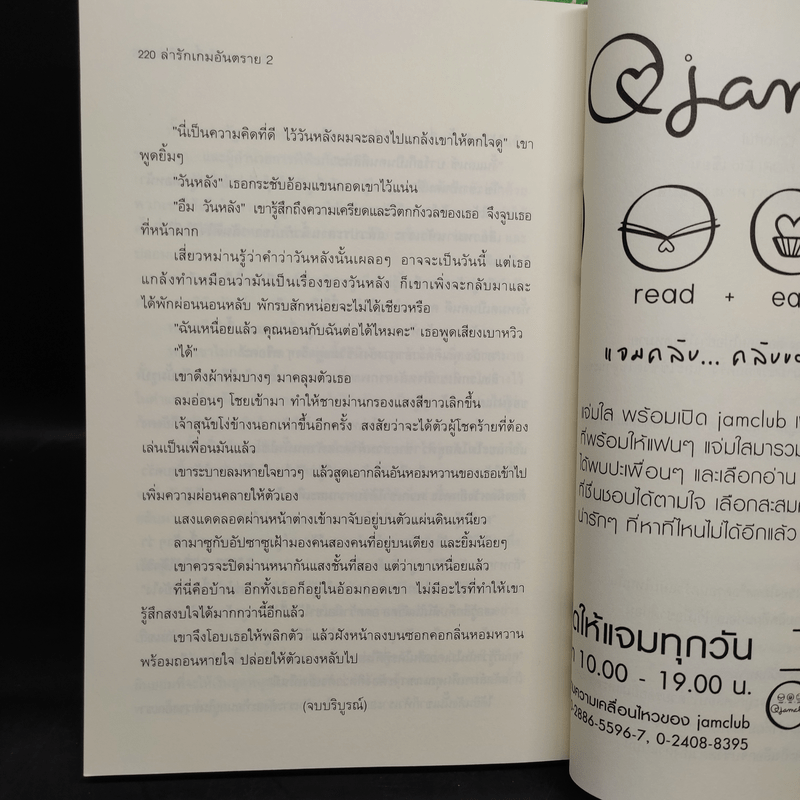 220 ล่ารักเกมอันตราย 2
"นี่เป็นความคิดที่ดี ไว้วันหลังผมจะลองไปแกล้งเขาให้ตกใจดู" เขา
พูดยิ้มๆ
"วันหลัง" เธอกระชับอ้อมแขนกอดเขาไว้แน่น
"อืม วันหลัง" เขารู้สึกถึงความเครียดและวิตกกังวลของเธอ จึงจูบเธอ
ที่หน้าผาก
เสี่ยวหม่านรู้ว่าคำว่าวันหลังนั้นเผลอๆ อาจจะเป็นวันนี้ แต่เธอ
แกล้งทำเหมือนว่ามันเป็นเรื่องของวันหลัง ก็เขาเพิ่งจะกลับมาและ
ได้พักผ่อนนอนหลับ พักรบสักหน่อยจะไม่ได้เชียวหรือ
"ฉันเหนื่อยแล้ว คุณนอนกับฉันต่อได้ไหมคะ" เธอพูดเสียงเบาหวิว
"ได้"
เขาดึงผ้าห่มบางๆ มาคลุมตัวเธอ
ลมอ่อนๆ โชยเข้ามา ทำให้ชายม่านกรองแสงสีขาวเลิกขึ้น
เจ้าสุนัขโง่ข้างนอกเห่าขึ้นอีกครั้ง สงสัยว่าจะได้ตัวผู้โชคร้ายที่ต้อง
เล่นเป็นเพื่อนมันแล้ว
เขาระบายลมหายใจยาวๆ แล้วสูดเอากลิ่นอันหอมหวานของเธอเข้าไป
เพิ่มความผ่อนคลายให้ตัวเอง
แสงแดดลอดผ่านหน้าต่างเข้ามาจับอยู่บนตัวแผ่นดินเหนียว
ลามาซูกับอัปซาซูเฝ้ามองคนสองคนที่อยู่บนเตียง และยิ้มน้อยๆ
เขาควรจะปิดม่านหนากันแสงชั้นที่สอง แต่ว่าเขาเหนื่อยแล้ว
ที่นี่คือบ้าน อีกทั้งเธอก็อยู่ในอ้อมกอดเขา ไม่มีอะไรที่ทำให้เขา
รู้สึกสงบใจได้มากกว่านี้อีกแล้ว
เขาจึงโอบเธอให้พลิกตัว แล้วฝังหน้าลงบนซอกคอกลิ่นหอมหวาน
พร้อมถอนหายใจ ปล่อยให้ตัวเองหลับไป
(จบบริบูรณ์)
@jam
read + ea
แจมคลับ... คลับ
แจ่มใส พร้อมเปิด jamclub
ที่พร้อมให้แฟนๆ แจ่มใสมารวม
ได้พบปะเพื่อนๆ และเลือกอ่าน
ที่ชื่นชอบได้ตามใจ เลือกสะสม
น่ารักๆ ที่หาที่ไหนไม่ได้อีกแล้ว
ให้แจมทุกวัน
10.00 - 19.00 น.
ความเคลื่อนไหวของ jamclub
-2886-5596-7, 0-2408-8395